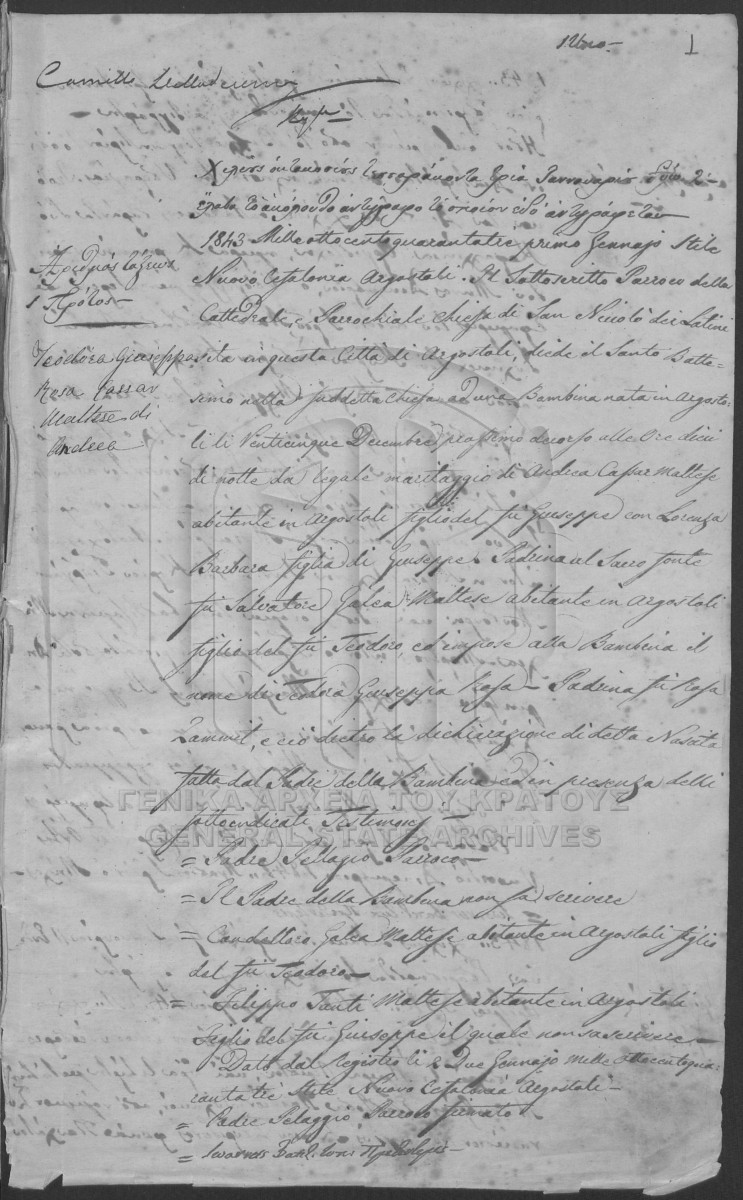 1 Uno. 1
Camillo
Χίλιους οκτακοσίους τεσσαράκοντα τρία Ιαννουαρίου 2
έλαβα το ακόλουθο αντίγραφο το οποίον εδώ αντιγράφεται
1843 Mille ottocento quarantatre primo Gennajo Stile
Nuovo Cefalonia Argostoli. Il Sottoscritto Parroco della
Cattedrale e Parrochiale Chiesa di San Nicolò dei Latini
sita in questa Città di Argostoli, diede il Santo Batte-
simo nella suddetta Chiesa ad una Bambina nata in Argosto-
li li Venticinque Decembre prossimo decorso alle Ore dieci
di notte da legale maritaggio di Andrea Cassar Maltese
abitante in Argostoli figlio del fù Giuseppe con Lorenza
Barbara figlia di Giuseppe. Padrino al Sacro fonte
fù Salvatore Galea Maltese abitante in Argostoli
figlio del fù Teodoro, ed impose alla Bambina il
nome di Teodora Giuseppa Rosa — Padrina fù Rosa
Zammit, e ciò dietro la dichiarazione di detta Nascita
fatta dal Padre della Bambina ed in presenza delli
sottoindicati Testimonj —
= Padre Pelagio Parroco —
= Il Padre della Bambina non sa scrivere
= Candelloro Galea Maltese abitante in Argostoli figlio
del fù Teodoro —
= Filippo Tanti Maltese abitante in Argostoli
figlio del fù Giuseppe il quale non sa scrivere —
Dato dal Registro li 2 Due Gennajo mille ottocento qua-
rantatre Stile Nuovo Cefalonia Argostoli —
= Padre Pelaggio Parroco firmato
Αριθμός τάξεως
1 Πρώτος —
Teodora Giuseppa
Rosa Cassar
Maltese di
Andrea
ΓΕΝΙΚΑ ΑΡΧΕΙΑ ΤΟΥ ΚΡΑΤΟΥΣ
GENERAL STATE ARCHIVES